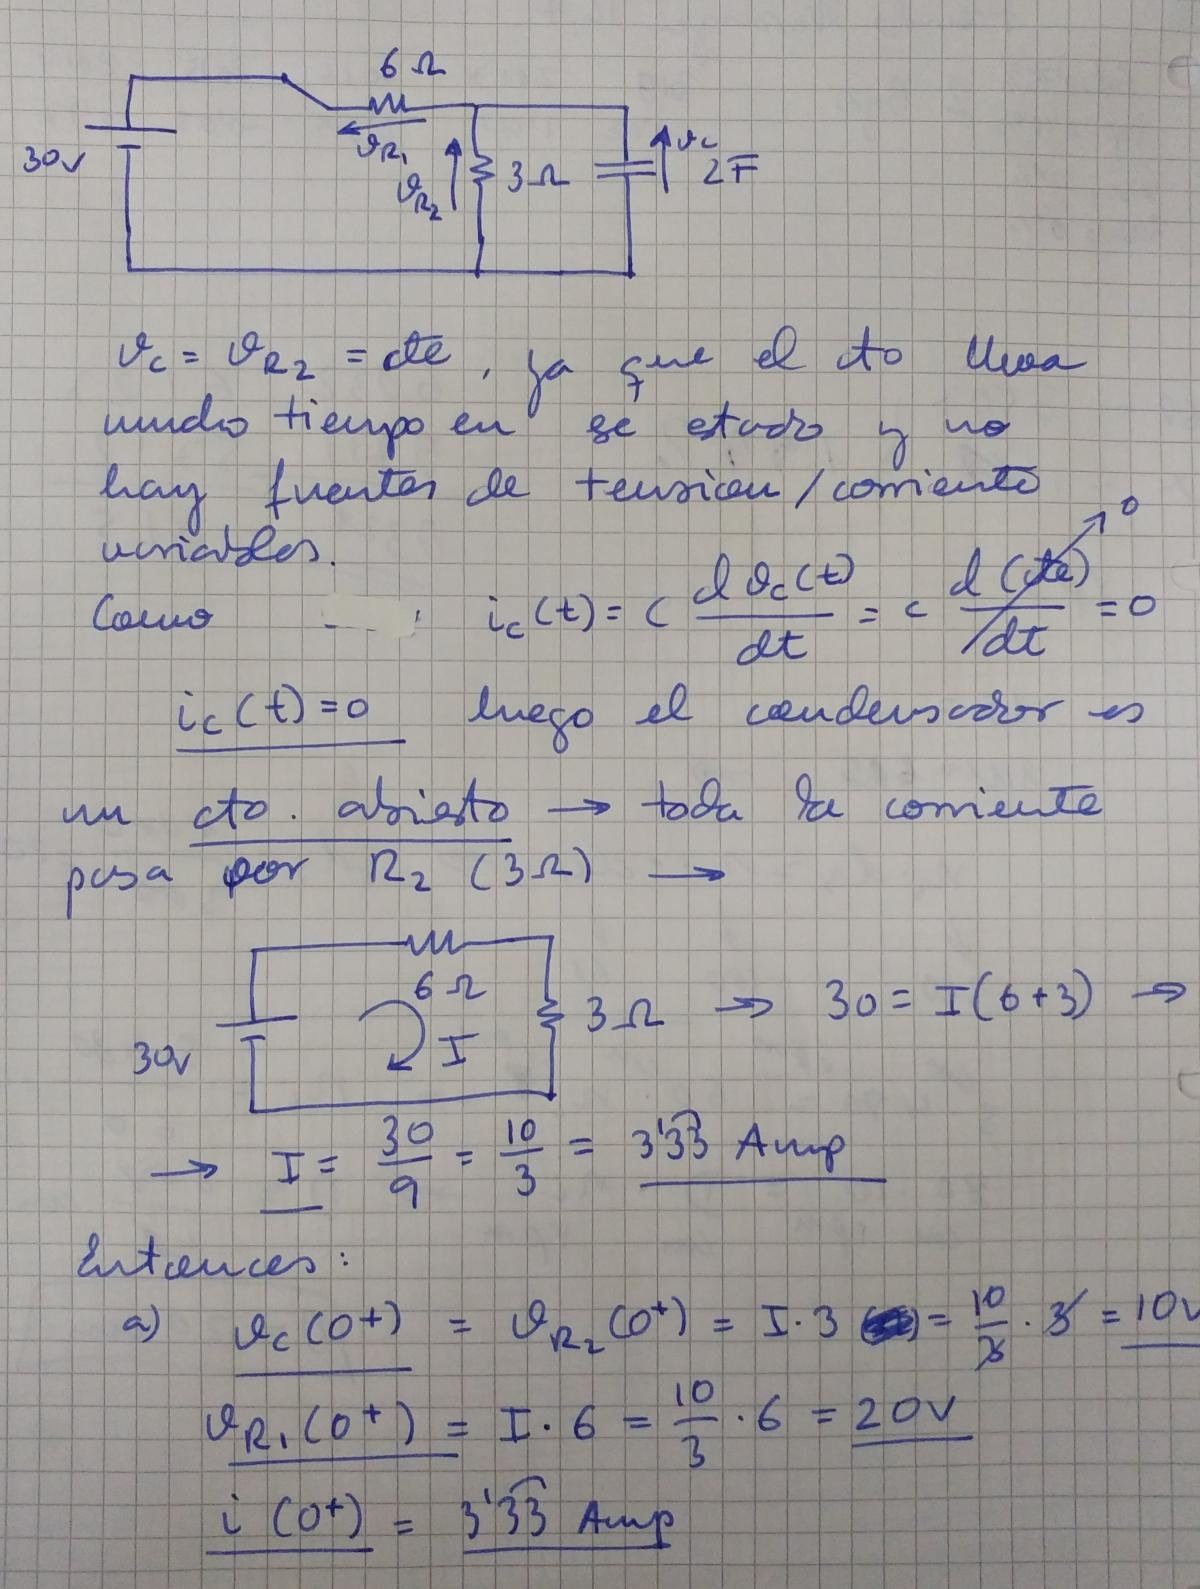 6 Ω
30V
𝑣R1
𝑣R2
3Ω
𝑣c
2F
𝑣c = 𝑣R2 = cte, ya que el cto lleva
mucho tiempo en se estado y no
hay fuentes de tension/corriente
variables.
Como ic(t) = C d𝑣c(t)/dt = C d(cte)/dt = 0
0
ic(t)=0 luego el condensador es
un cto. abierto → toda la corriente
pasa por R2 (3Ω) →
6Ω
30V
I
3Ω → 30 = I(6+3) →
→ I = 30/9 = 10/3 = 3'33 Amp
Entonces:
a) 𝑣c(0+) = 𝑣R2(0+) = I·3 = 10/3 · 3 = 10V
𝑣R1(0+) = I·6 = 10/3 · 6 = 20V
i(0+) = 3'33 Amp